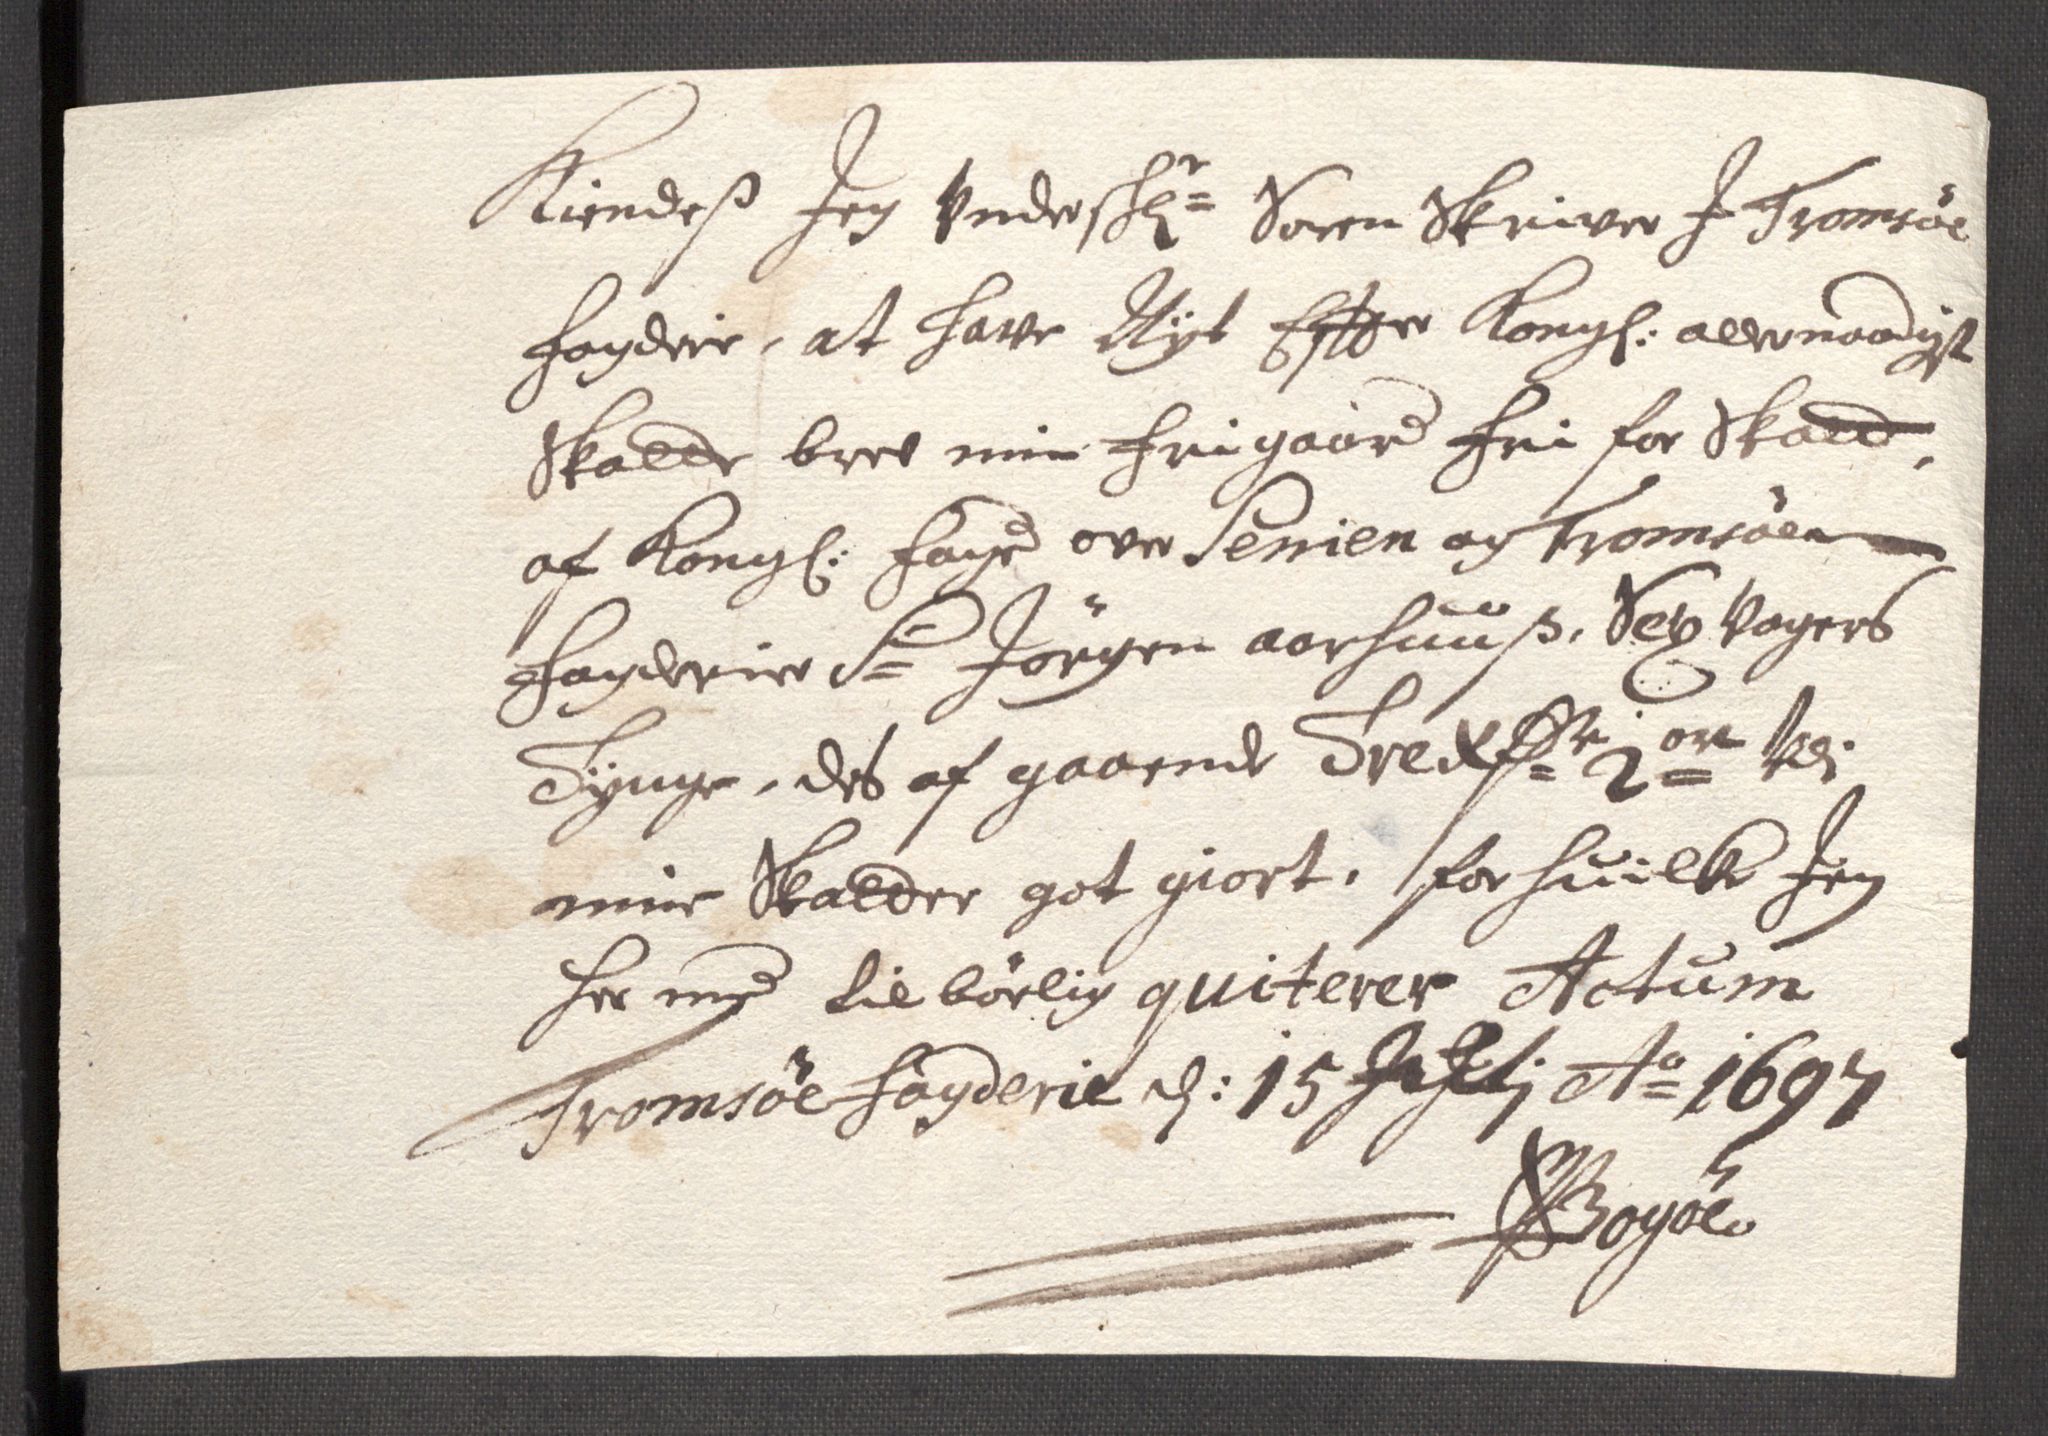 Kiendeß Jeg Undersch: Soren Skriver J Tromsöe
fogderie, at have Nyt Effter Kongl: allernaadigst
Skatte brev min frigaard fri for Skatt,
af Kongl: foget over Senien og Tromsöens
fogderier Sr Jörgen aarhuuß, Sex Vogers
Tynge, des af gaaende
mine Skatter got giort, for huilke Jeg
her med til börlig quiterer Actum
Tromsöe fogderie d: 15 Julij Ao 1697